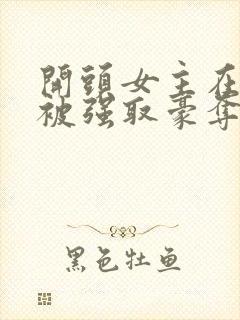 開頭女主在
被强取豪奪
黑色牡鱼